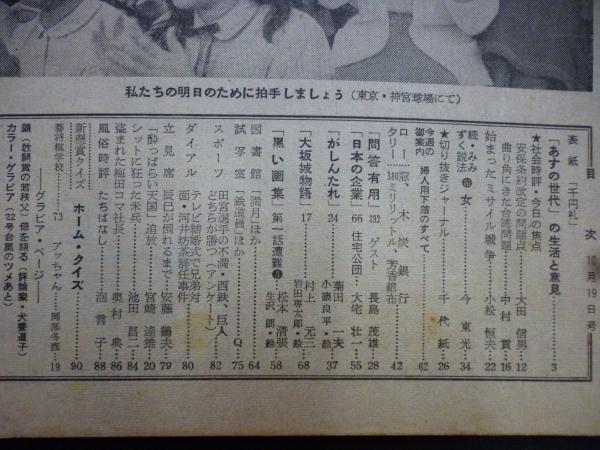 私たちの明日のために拍手しましょう(東京・神宮球場にて)
目次 10月19日号
表紙「千円札」
「あすの世代」の生活と意見 3
★社会時評・今日の焦点
安保条約改定の問題点 大田信男 12
曲り角にきた台湾問題 中村貢 16
始まったミサイル戦争 小松恒夫 22
★切り抜きジャーナル 千代紙 26
続・みみずく説法 女 今東光 34
今週の御案内 婦人用下落のすべて 62
ロー 窓、木炭銀行
タリー 380ミリリットル、芳香綿布 42
「問答有用」392 ゲスト 長島茂雄 28
「日本の企業」66 住宅公団 大宅壮一 55
「がしんたれ」24 菊田一夫 小磯良平・絵 37
「大坂城物語」17 村上元三 岩田専太郎・絵 68
「黒い画集」第一話 遭難③ 松本清張 生沢朗・絵 58
図書館「満月」ほか 64
試写室「鉄道員」ほか Q 75
スポーツ 田宮選手の不満・西鉄、巨人どちらが勝つ(アンケート) 82
ダイアル テレビ結婚式で兄弟対面・河井坊茶辞任事件 80
立見席 辰巳が倒れるまで 安藤鶴夫 79
「酔っぱらい天国」追放 宮崎達雄 20
シットに狂った米兵 池田昌二 84
盗まれた梅田コマ社長 奥村典 86
風俗時評 たちばなし 泡言子 88
ホーム・クイズ
新懸賞クイズ 90
春将棋学校 73
アッちゃん 岡部冬彦 19
――グラビア・ページ――
顔(敢闘賞の若秩父)母を語る(評論家・犬養道子)
カラー・グラビア(22号台風のツメあと)